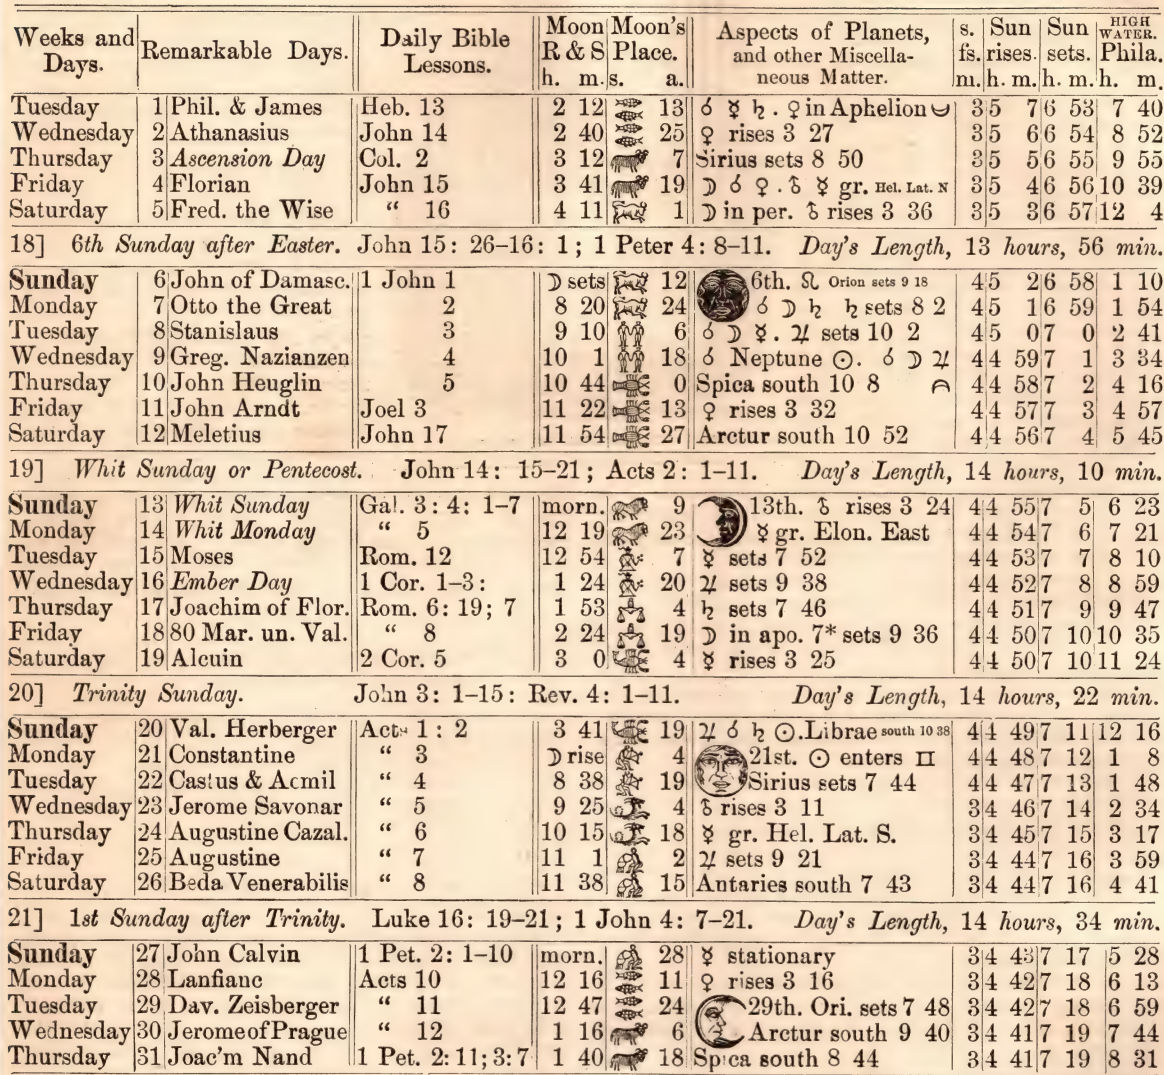 Weeks and Days. Remarkable Days. Daily Bible Lessons. Moon R & S h. m. Moon's Place. s. a. Aspects of Planets, and other Miscellaneous Matter. s. fs. m. Sun rises. h. m. Sun sets. h. m. HIGH WATER. Phila. h. m.
Tuesday 1 Phil. & James Heb. 13 2 12 13 ☌ ☿ ♄ . ♀ in Aphelion 3 5 7 6 53 7 40
Wednesday 2 Athanasius John 14 2 40 25 ♀ rises 3 27 3 5 6 6 54 8 52
Thursday 3 Ascension Day Col. 2 3 12 7 Sirius sets 8 50 3 5 5 6 55 9 55
Friday 4 Florian John 15 3 41 19 ☽ ☌ ♀ . ♁ ☿ gr. Hel. Lat. N 3 5 4 6 56 10 39
Saturday 5 Fred. the Wise “ 16 4 11 1 ☽ in per. ♁ rises 3 36 3 5 3 6 57 12 4
18] 6th Sunday after Easter. John 15: 26–16: 1; 1 Peter 4: 8–11. Day's Length, 13 hours, 56 min.
Sunday 6 John of Damasc. 1 John 1 ☽ sets 12 6th. ☊ Orion sets 9 18 4 5 2 6 58 1 10
Monday 7 Otto the Great 2 8 20 24 ☌ ☽ ♄ ♄ sets 8 2 4 5 1 6 59 1 54
Tuesday 8 Stanislaus 3 9 10 6 ☌ ☽ ☿ . ♃ sets 10 2 4 5 0 7 0 2 41
Wednesday 9 Greg. Nazianzen 4 10 1 18 ☌ Neptune ☉. ☌ ☽ ♃ 4 4 59 7 1 3 34
Thursday 10 John Heuglin 5 10 44 0 Spica south 10 8 4 4 58 7 2 4 16
Friday 11 John Arndt Joel 3 11 22 13 ♀ rises 3 32 4 4 57 7 3 4 57
Saturday 12 Meletius John 17 11 54 27 Arctur south 10 52 4 4 56 7 4 5 45
19] Whit Sunday or Pentecost. John 14: 15–21; Acts 2: 1–11. Day's Length, 14 hours, 10 min.
Sunday 13 Whit Sunday Gal. 3: 4: 1–7 morn. 9 13th. ♁ rises 3 24 4 4 55 7 5 6 23
Monday 14 Whit Monday “ 5 12 19 23 ☿ gr. Elon. East 4 4 54 7 6 7 21
Tuesday 15 Moses Rom. 12 12 54 7 ☿ sets 7 52 4 4 53 7 7 8 10
Wednesday 16 Ember Day 1 Cor. 1–3: 1 24 20 ♃ sets 9 38 4 4 52 7 8 8 59
Thursday 17 Joachim of Flor. Rom. 6: 19; 7 1 53 4 ♄ sets 7 46 4 4 51 7 9 9 47
Friday 18 80 Mar. un. Val. “ 8 2 24 19 ☽ in apo. 7* sets 9 36 4 4 50 7 10 10 35
Saturday 19 Alcuin 2 Cor. 5 3 0 4 ☿ rises 3 25 4 4 50 7 10 11 24
20] Trinity Sunday. John 3: 1–15: Rev. 4: 1–11. Day's Length, 14 hours, 22 min.
Sunday 20 Val. Herberger Acts 1: 2 3 41 19 ♃ ☌ ♄ ☉. Librae south 10 38 4 4 49 7 11 12 16
Monday 21 Constantine “ 3 ☽ rise 4 21st. ☉ enters ♊ 4 4 48 7 12 1 8
Tuesday 22 Castus & Aemil “ 4 8 38 19 Sirius sets 7 44 4 4 47 7 13 1 48
Wednesday 23 Jerome Savonar “ 5 9 25 4 ♁ rises 3 11 3 4 46 7 14 2 34
Thursday 24 Augustine Cazal. “ 6 10 15 18 ☿ gr. Hel. Lat. S. 3 4 45 7 15 3 17
Friday 25 Augustine “ 7 11 1 2 ♃ sets 9 21 3 4 44 7 16 3 59
Saturday 26 Beda Venerabilis “ 8 11 38 15 Antaries south 7 43 3 4 44 7 16 4 41
21] 1st Sunday after Trinity. Luke 16: 19–21; 1 John 4: 7–21. Day's Length, 14 hours, 34 min.
Sunday 27 John Calvin 1 Pet. 2: 1–10 morn. 28 ☿ stationary 3 4 43 7 17 5 28
Monday 28 Lanfianc Acts 10 12 16 11 ♀ rises 3 16 3 4 42 7 18 6 13
Tuesday 29 Dav. Zeisberger “ 11 12 47 24 29th. Ori. sets 7 48 3 4 42 7 18 6 59
Wednesday 30 Jerome of Prague “ 12 1 16 6 Arctur south 9 40 3 4 41 7 19 7 44
Thursday 31 Joac'm Nand 1 Pet. 2: 11; 3: 7 1 40 18 Spica south 8 44 3 4 41 7 19 8 31